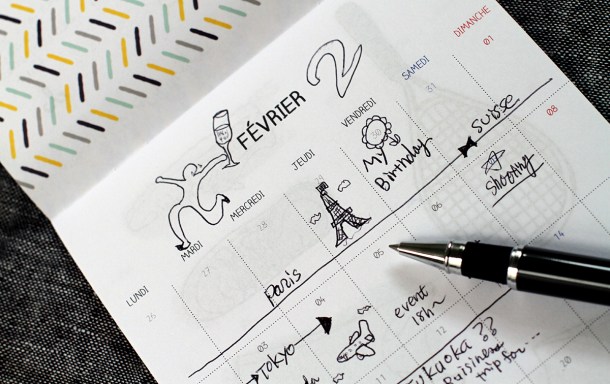 FÉVRIER 2
LUNDI MARDI MERCREDI JEUDI VENDREDI SAMEDI DIMANCHE
26 27 28 31 01
Paris
My
Birthday
Suisse
03 04 05 06 08
TOKYO
event
18h~
Shooting
12 14
Fukuoka ??
Buisiness
trip for...
20